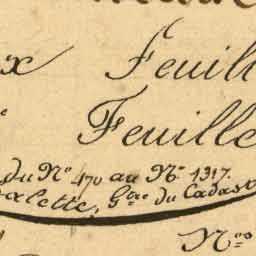 x Feuill
Feuille
du Nº 470 au Nº 1317.
alette, Gde du Cadast
Nos